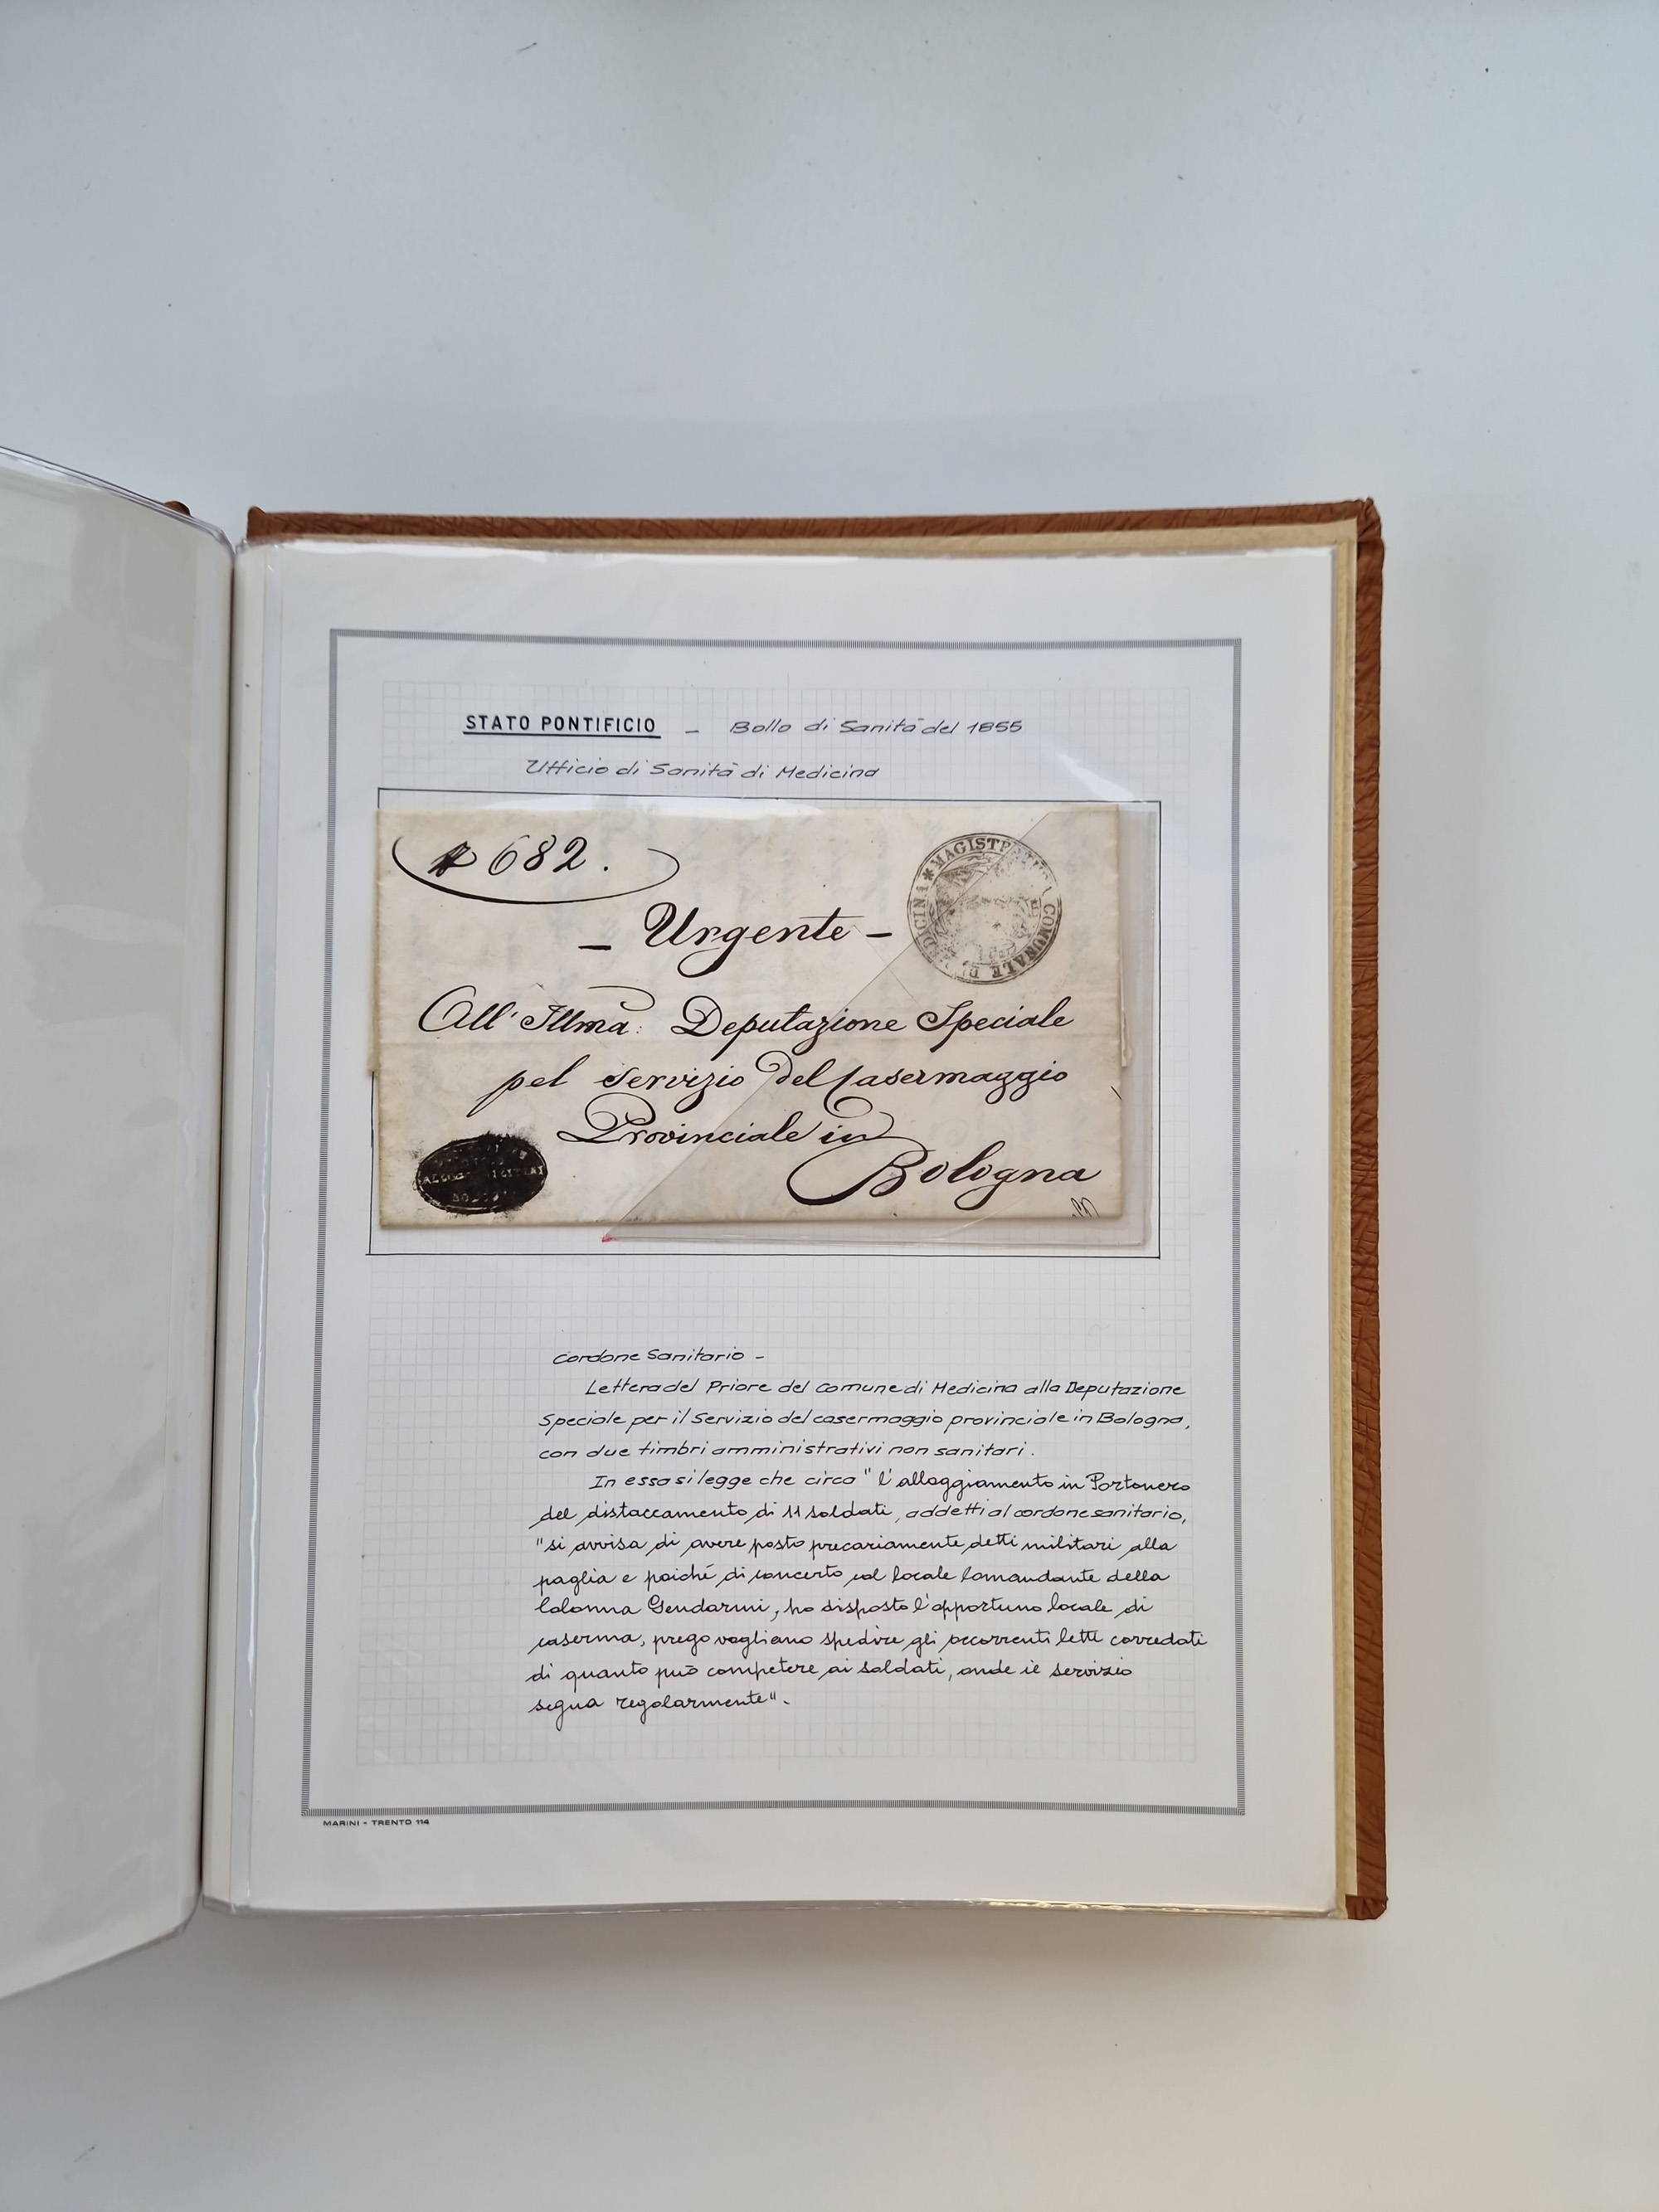 STATO PONTIFICIO - Bollo di Sanità del 1855
Ufficio di Sanità di Medicina
682.
- Urgente -
MAGISTRATURA COMUNALE DI MEDICINA
All' Illma: Deputazione Speciale
pel servizio del Casermaggio
Provinciale in
Bologna
Cordone Sanitario -
Lettera del Priore del Comune di Medicina alla Deputazione
Speciale per il Servizio del casermaggio provinciale in Bologna,
con due timbri amministrativi non sanitari.
In essa si legge che circa "l'alloggiamento in Portonero
del distaccamento di 11 soldati, addetti al cordone sanitario,
"si avvisa di avere posto precariamente detti militari alla
paglia e poiché di concerto col locale Comandante della
Colonna Gendarmi, ho disposto l'opportuno locale di
caserma, prego vogliano spedire gli occorrenti letti corredati
di quanto può competere ai soldati, onde il servizio
segua regolarmente".
MARINI - TRENTO 114